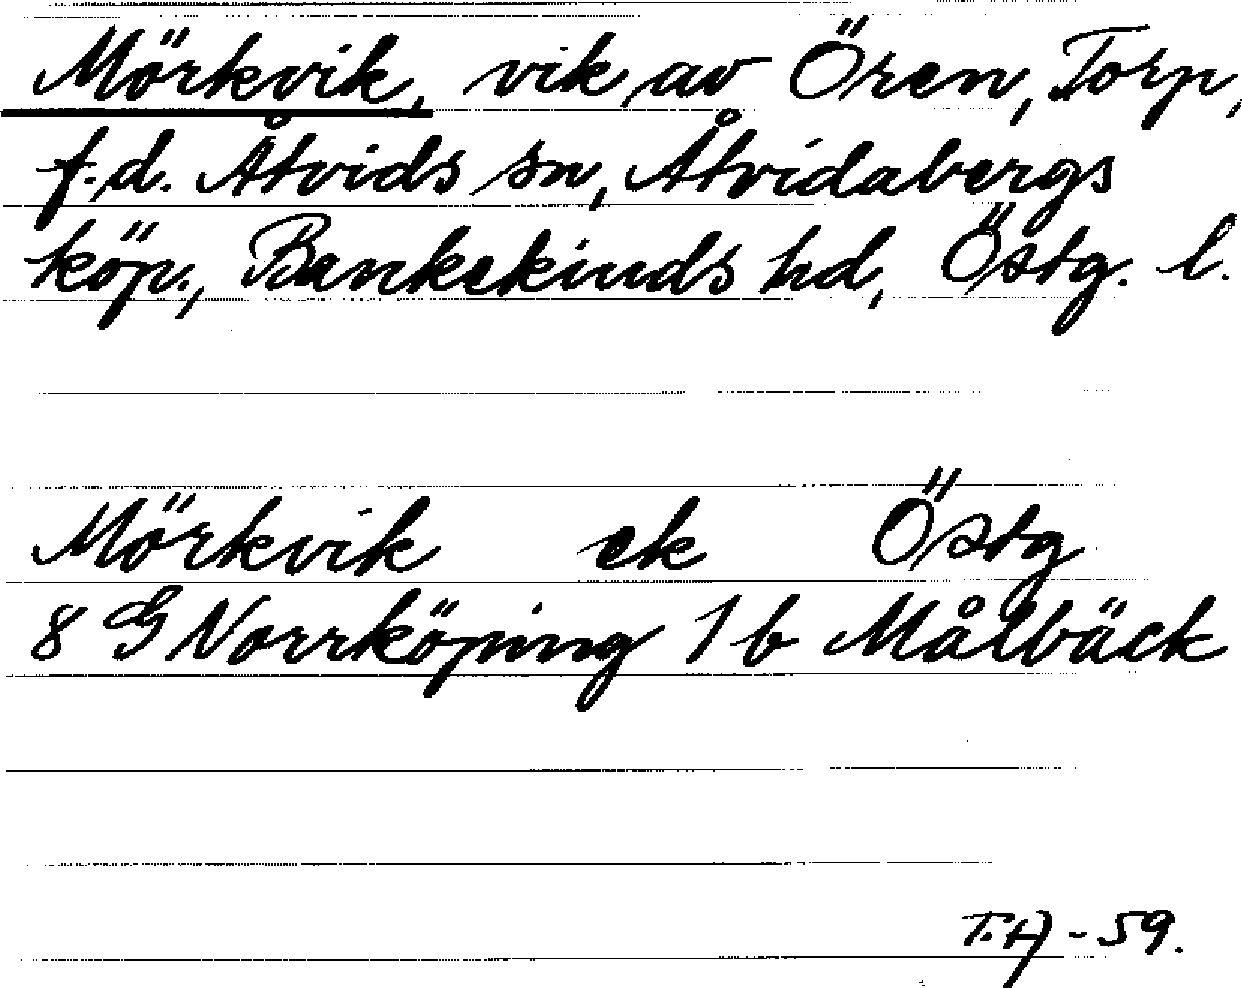 Mörkvik, vik av Ören, Torp,
f.d. Åtvids sn, Åtvidabergs
köp., Bankekinds hd, Östg. l.
Mörkvik ek Östg
8 G Norrköping 1 b Målbäck
T.A - 59.